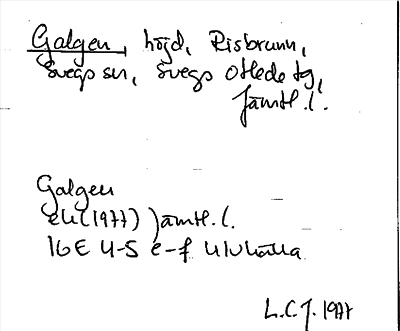 Galgen, höjd, Risbrunn,
Svegs sn, Svegs
Jämtl. l.
Galgen
ek (1977) Jämtl. l.
16E 4-5 e-f Ulvkälla
L.C.J. 1977